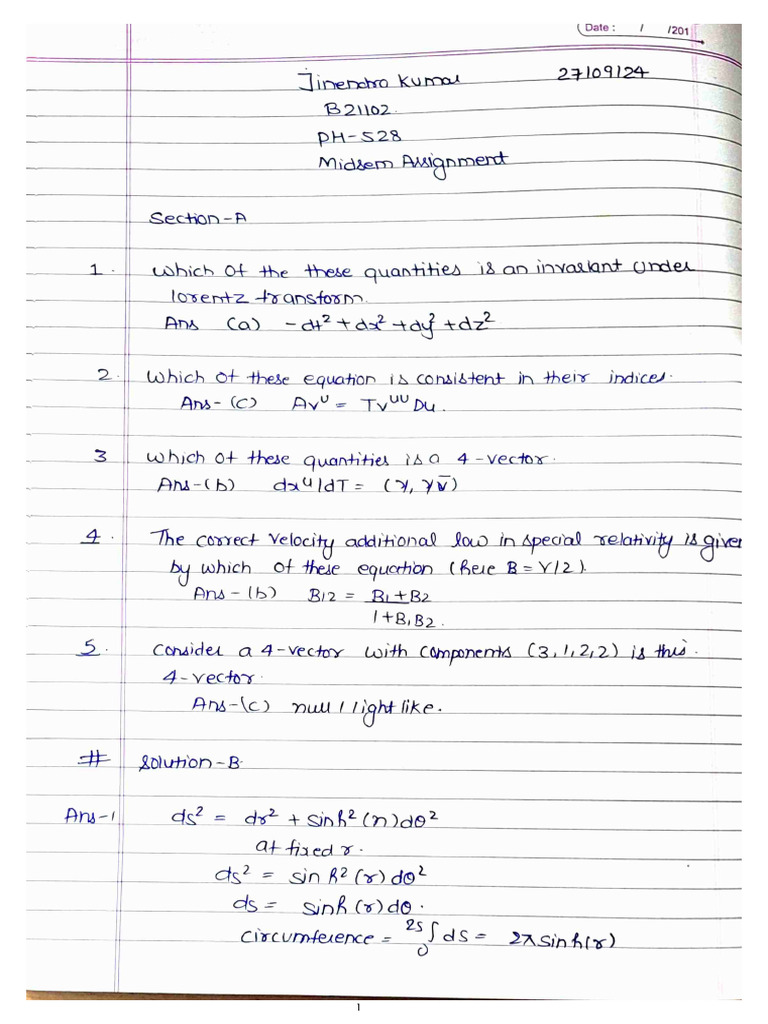 Date : / /201
Jinendra Kumar 27/09/24
B21102.
PH-528
Midsem Assignment
Section-A
1. Which of the these quantities is an invariant under
lorentz transform.
Ans (a) -dt² + dx² + dy² + dz²
2. Which of these equation is consistent in their indices.
Ans-(c) Aᵥᵘ = Tᵥᵘᵘ Dᵤ.
3 Which of these quantities is a 4-vector.
Ans-(b) dxᵘ/dT = (γ, γv̄)
4. The correct velocity additional law in special relativity is given
by which of these equation (here B = V/2).
Ans-(b) B12 = B1+B2
1+B1B2.
5. Consider a 4-vector with components (3,1,2,2) is this.
4-vector.
Ans-(c) null / lightlike.
# Solution-B.
Ans-1 ds² = dr² + sinh²(r)dθ²
at fixed r.
ds² = sinh²(r)dθ²
ds = sinh(r)dθ.
Circumference = ²ˢ∫₀ ds = 2πsinh(r)
1